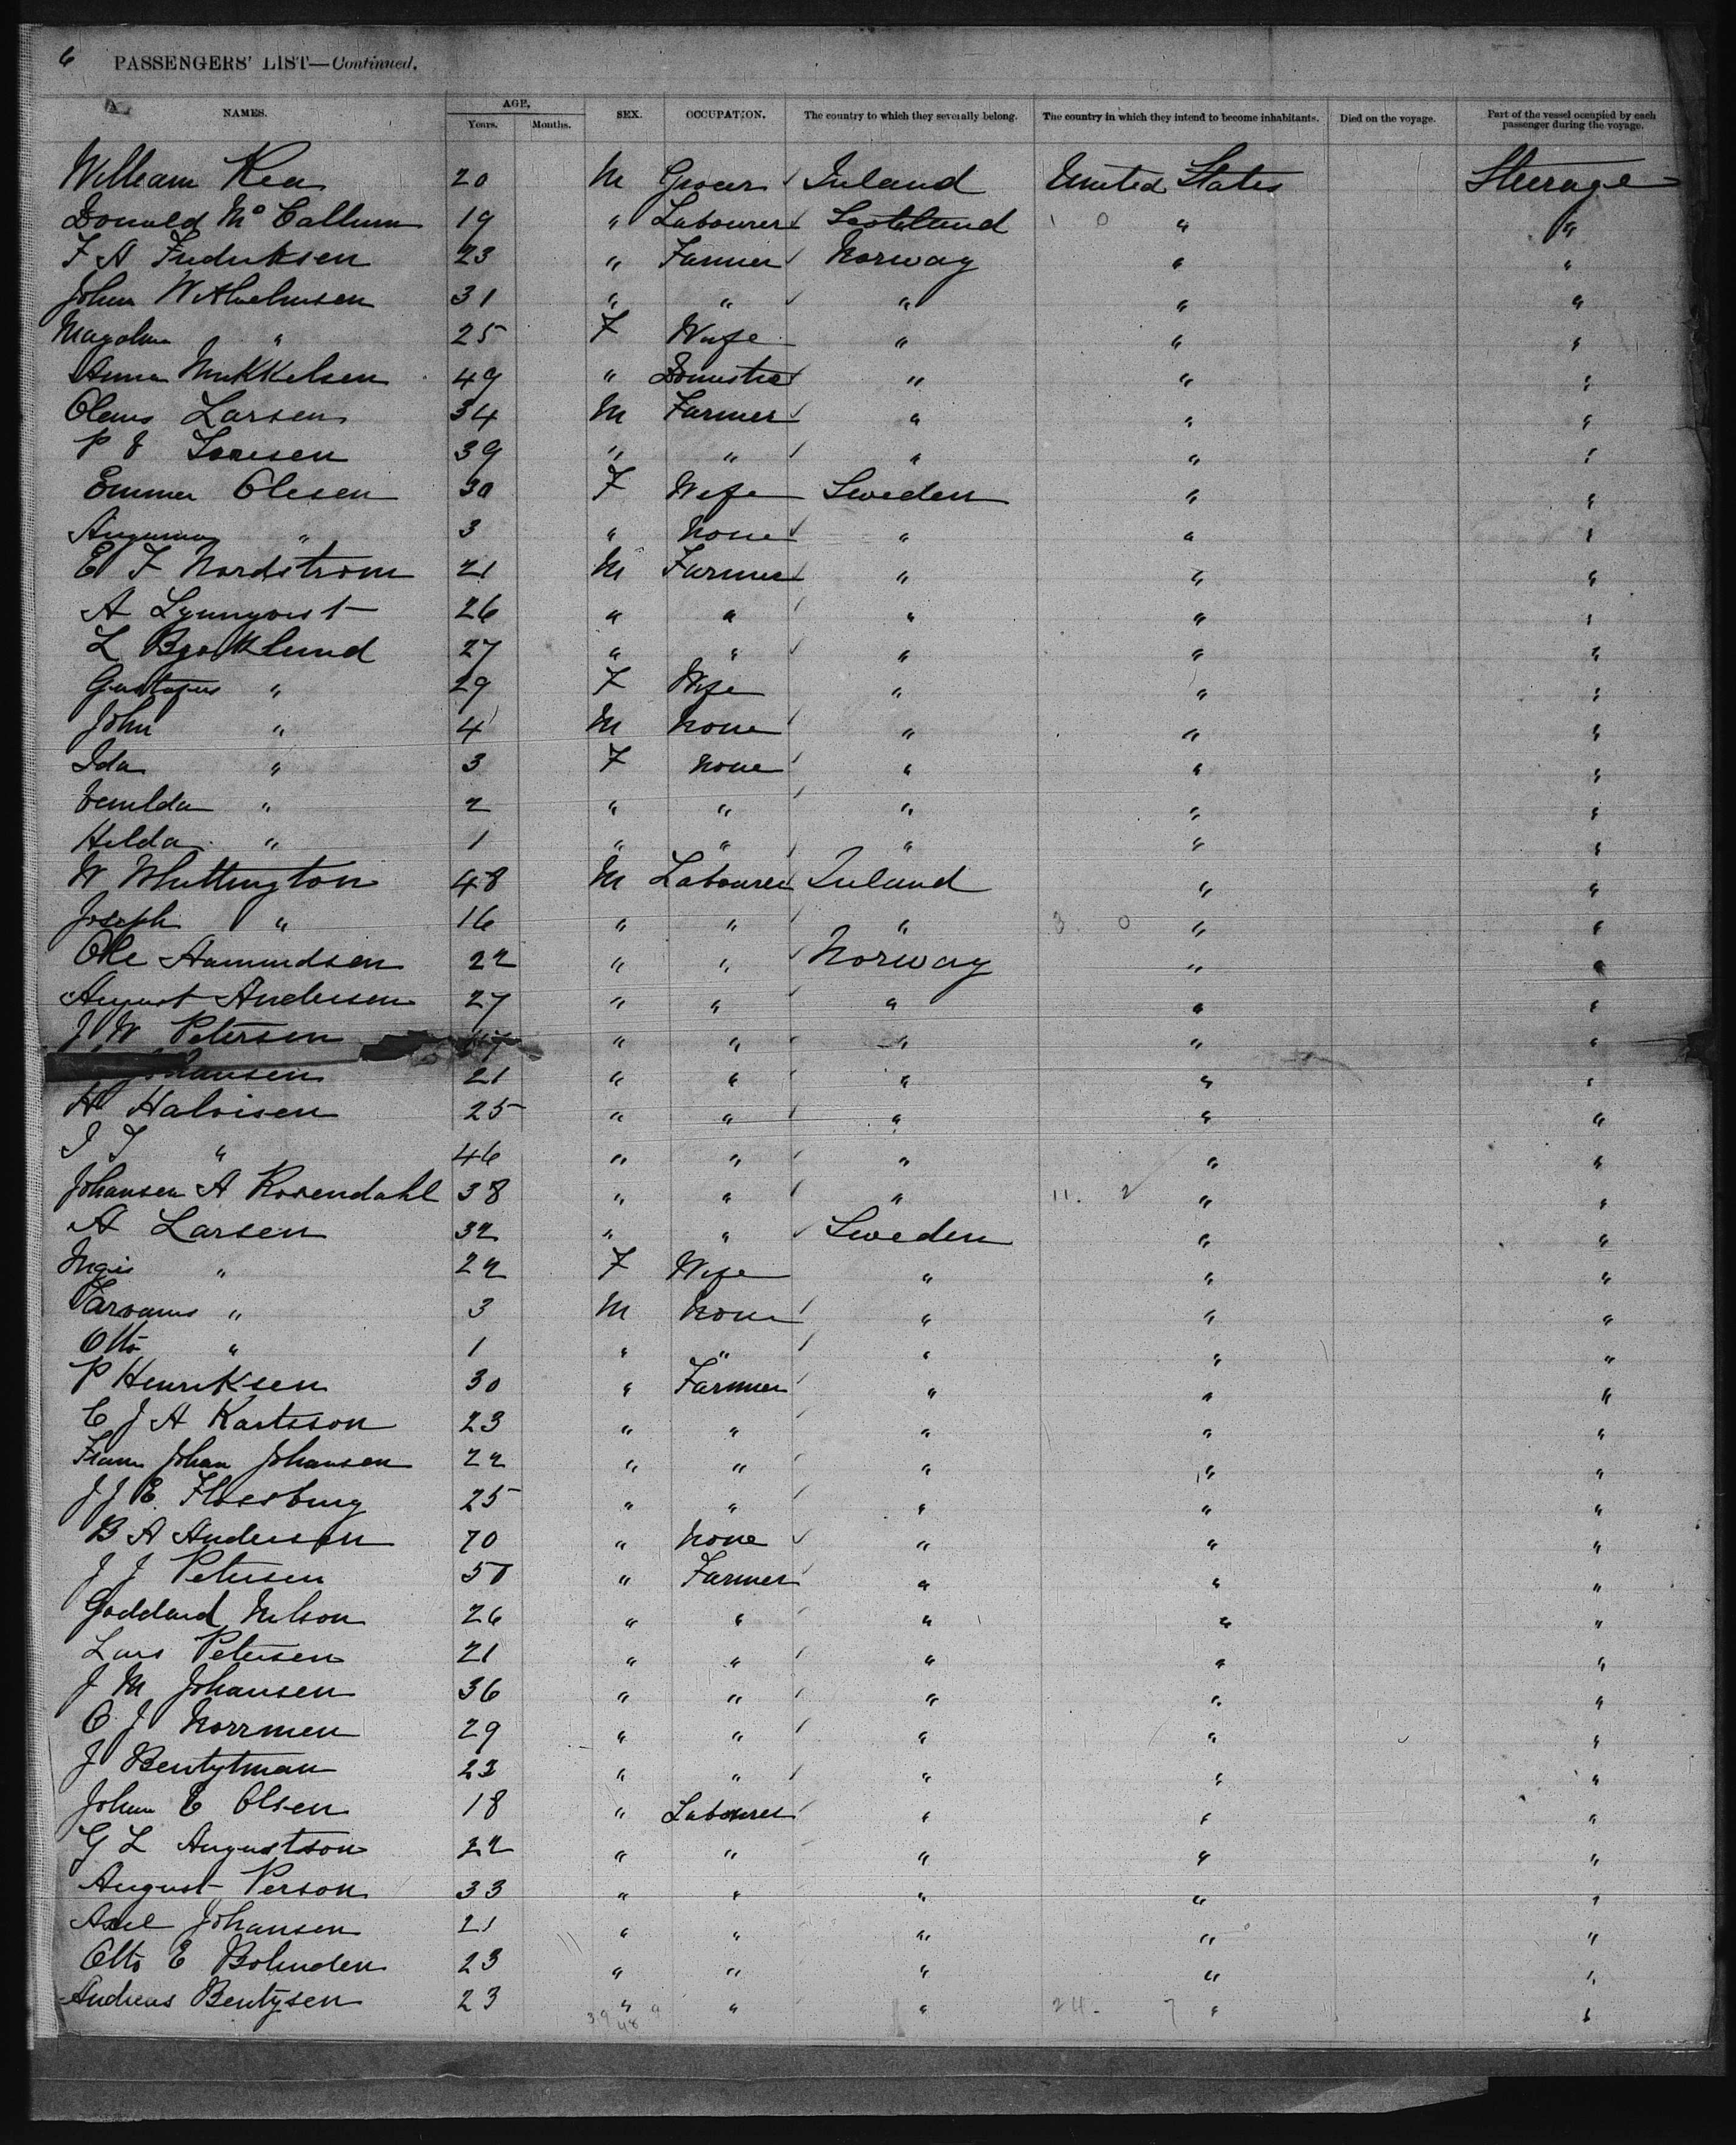 6 PASSENGERS' LIST—Continued.
NAMES. AGE. Years. Months. SEX. OCCUPATION. The country to which they severally belong. The country in which they intend to become inhabitants. Died on the voyage. Part of the vessel occupied by each passenger during the voyage.
William Rea 20 M Grocer Ireland United States Steerage
Donald McCallum 19 " Labourer Scotland 1 0 " "
F A Fredriksen 23 " Farmer Norway " "
Johan Wilhelmsen 31 " " " " "
" 25 F Wife " " "
Anna Mikkelsen 49 " Domestic " " "
Olaus Larsen 34 M Farmer " " "
P 39 " " " " "
Emma Olesen 30 F Wife Sweden " "
" 3 " None " " "
E F Nordstrom 21 M Farmer " " "
A 26 " " " " "
L Bjorklund 27 " " " " "
" 29 F Wife " " "
John " 4 M None " " "
Ida " 3 F None " " "
" 2 " " " " "
Hilda " 1 " " " " "
W Whittington 48 M Labourer Ireland " "
Joseph " 16 " " " 3 0 " "
Ole Aamundsen 22 " " Norway " "
August Andersen 27 " " " " "
J W Petersen " " " " "
Johansen 21 " " " " "
H Halvisen 25 " " " " "
" 46 " " " " "
Johansen A Rosendahl 38 " " " 11. 2 " "
A Larsen 32 " " Sweden " "
" 22 F Wife " " "
" 3 M None " " "
Otto " 1 " " " " "
P Henriksen 30 " Farmer " " "
C J A Karlsson 23 " " " " "
Johan Johansen 22 " " " " "
J J E 25 " " " " "
B A Anderson 70 " None " " "
J J Petersen 50 " Farmer " " "
Goddard Nelson 26 " " " " "
Lars Petersen 21 " " " " "
J M Johansen 36 " " " " "
C J Norrmen 29 " " " " "
J Bentytman 23 " " " " "
Johan E Olsen 18 " Labourer " " "
G L Augustson 22 " " " " "
August Person 33 " " " " "
Axel Johansen 21 " " " " "
Otto E 23 " " " " "
Andreas Bentysen 23 " " " 24. 7 " "
39 9
48